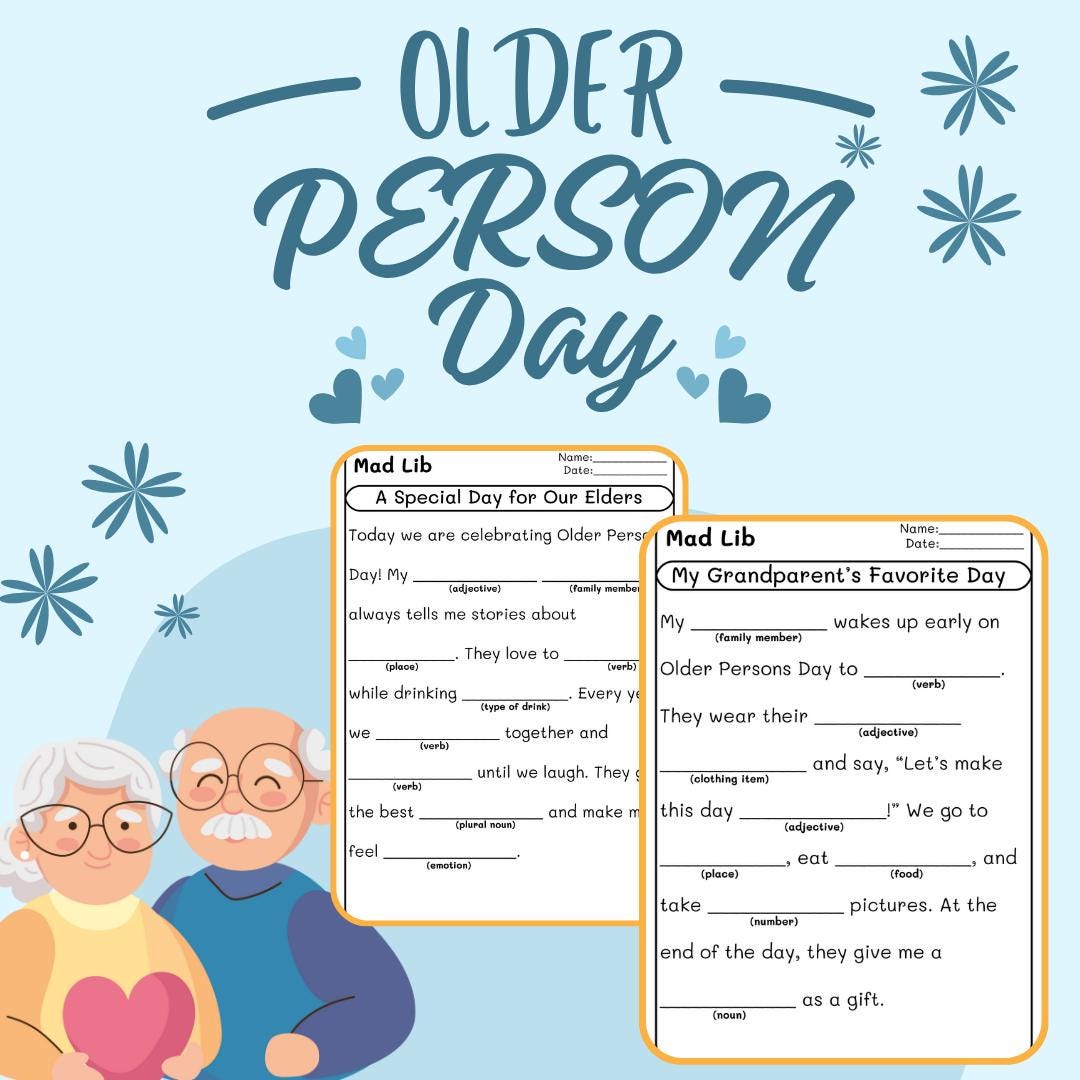 OLDER
PERSON
Day
Mad Lib
Name:____________
Date:____________
A Special Day for Our Elders
Today we are celebrating Older
Day! My ____________ ____________
(adjective) (family
always tells me stories about
____________. They love to ____________
(place) (verb)
while drinking ____________. Every
(type of drink)
we ____________ together and
(verb)
____________ until we laugh. They
(verb)
the best ____________ and make
(plural noun)
feel ____________.
(emotion)
Mad Lib
Name:____________
Date:____________
My Grandparent's Favorite Day
My ____________ wakes up early on
(family member)
Older Persons Day to ____________.
(verb)
They wear their ____________
(adjective)
____________ and say, “Let's make
(clothing item)
this day ____________!” We go to
(adjective)
____________, eat ____________, and
(place) (food)
take ____________ pictures. At the
(number)
end of the day, they give me a
____________ as a gift.
(noun)